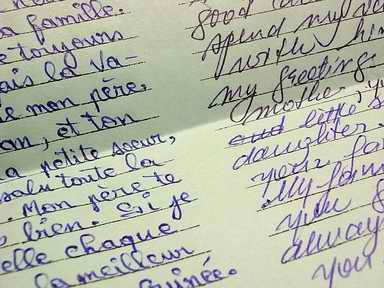 a famille.
e toujours
ais la va-
e mon père,
an, et ton
a petite soeur,
salu toute la
. Mon père te
bien. Si je
elle chaque
la meilleur
Guinée.
good
spend my
with him
my greeting
mother
and little
daughter
your
My fam
you
always
you